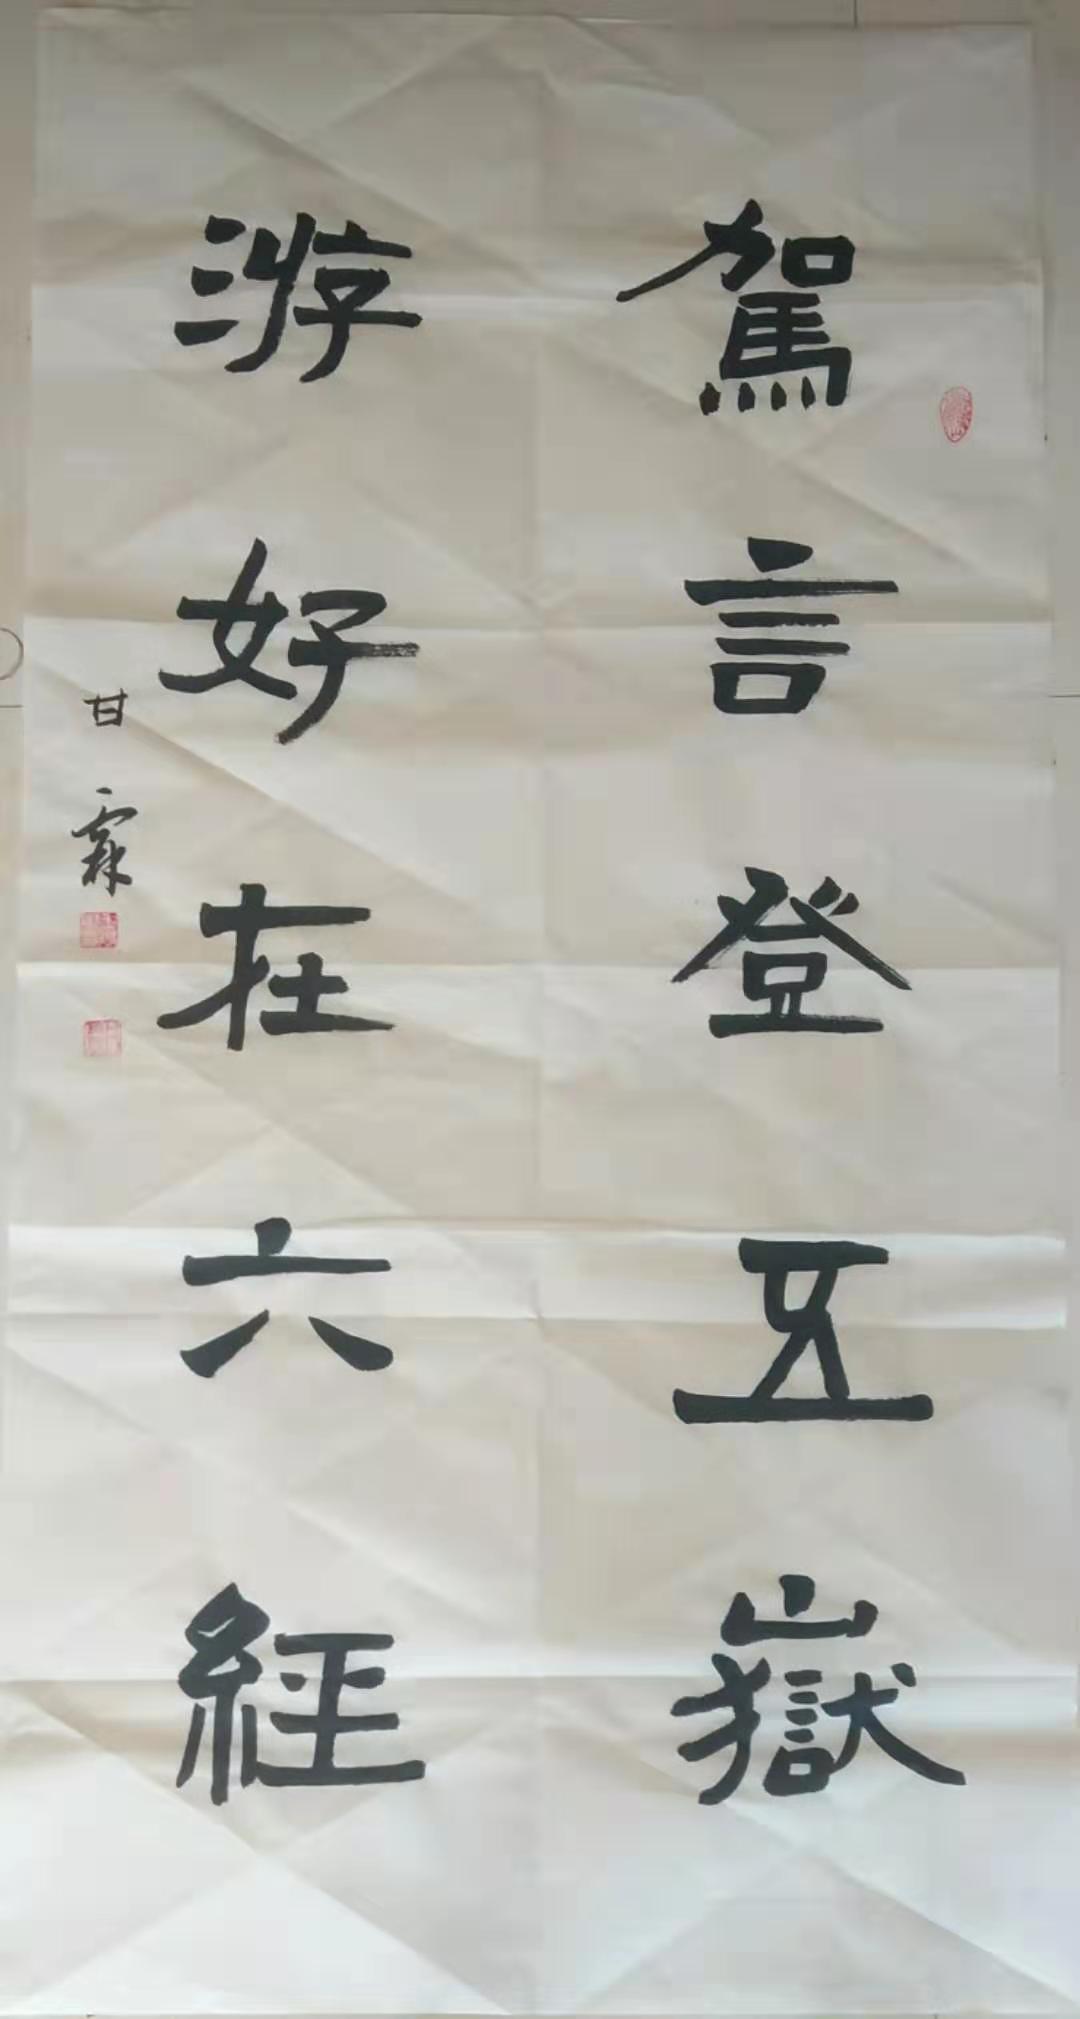 駕言登五嶽
游好在六經
甘霖